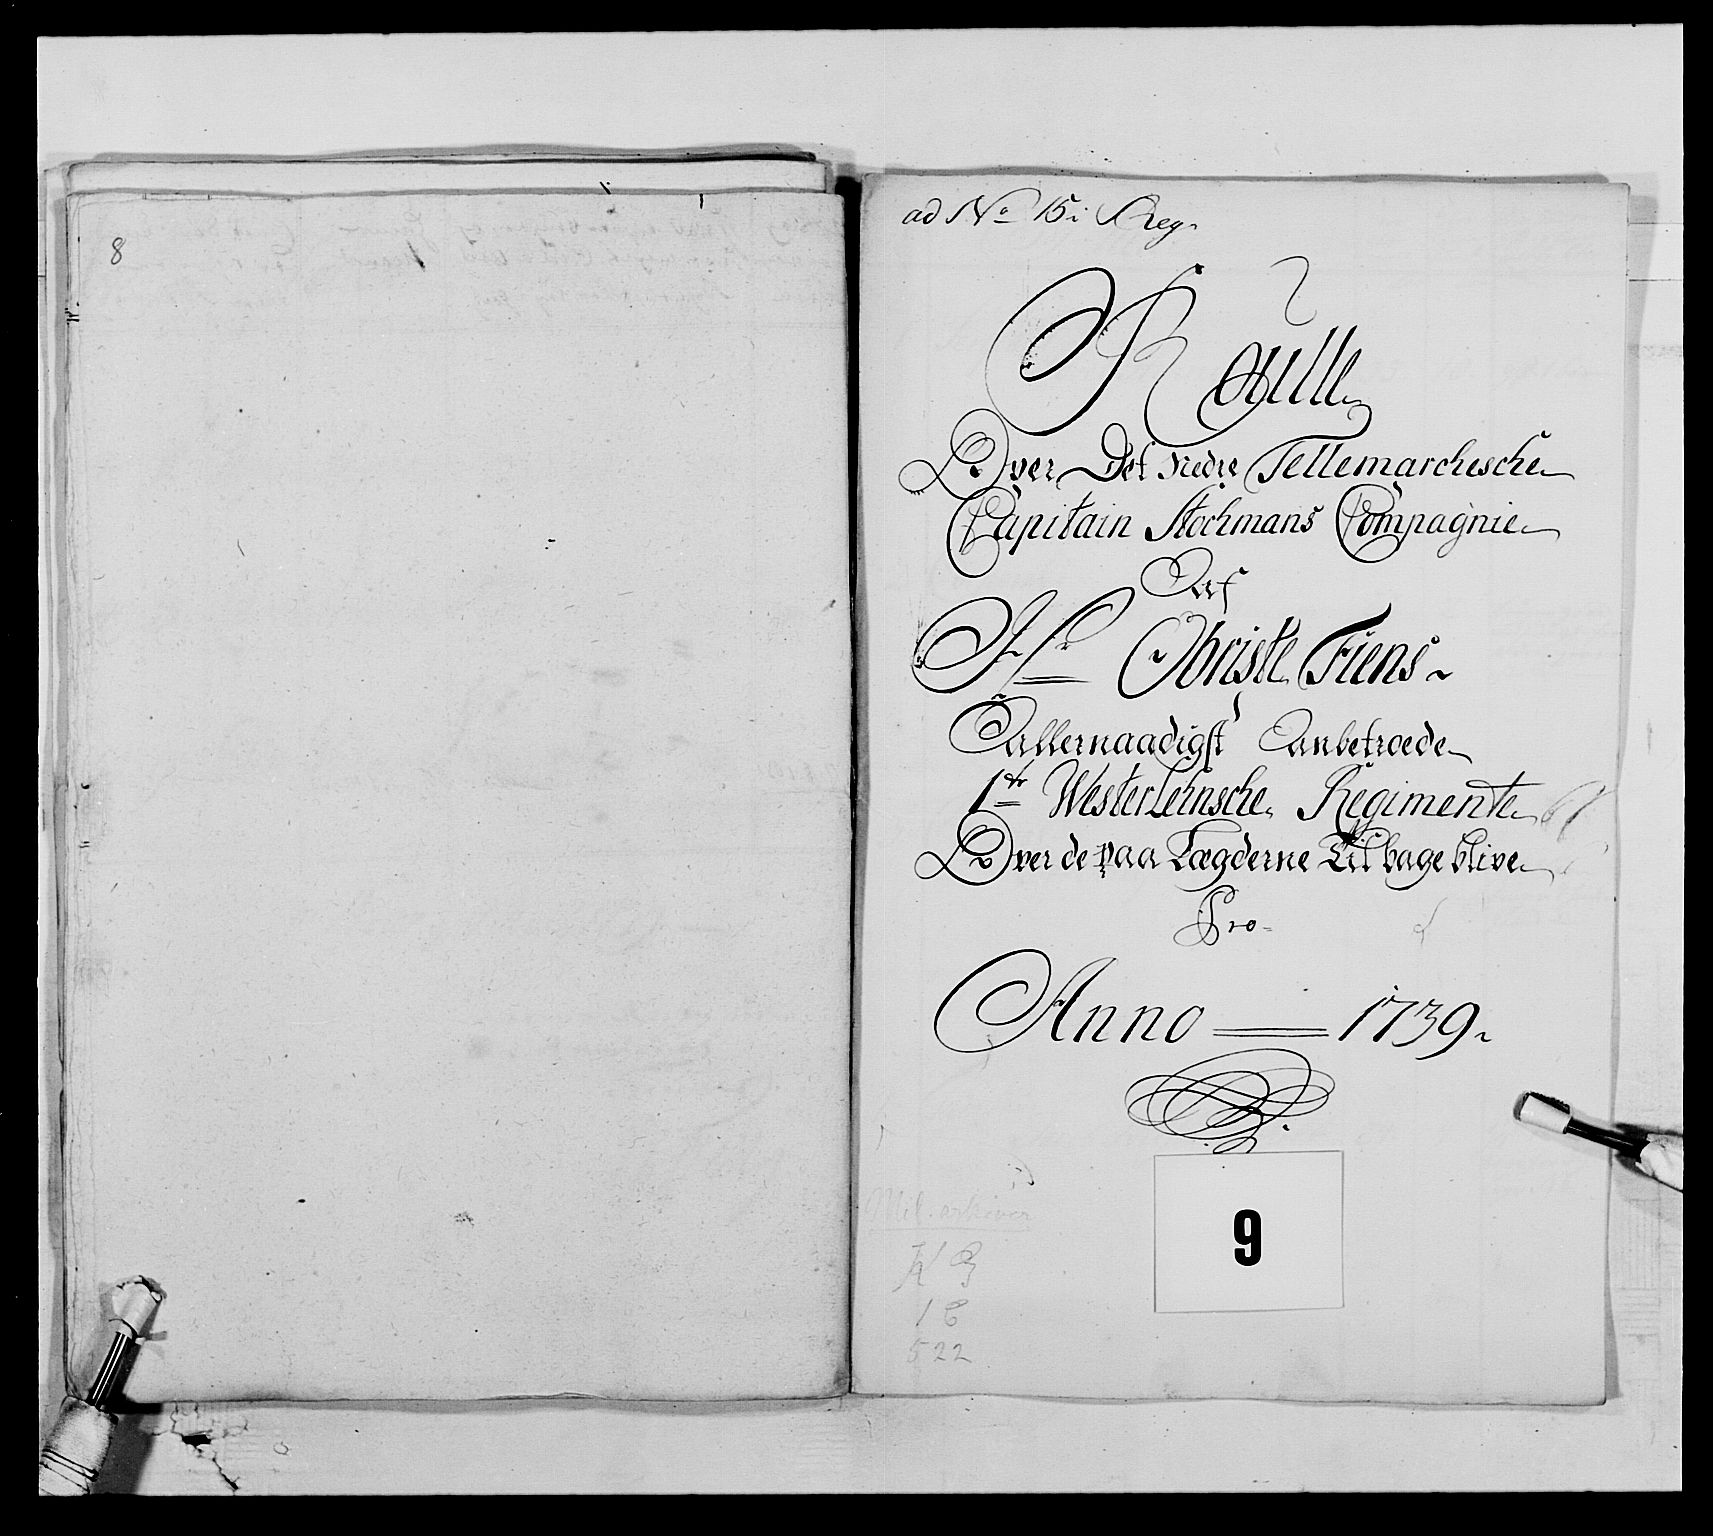 8
ad No 15 i Reg.
Roulle
Over Det Nedre Tellemarchesche
Capitain Stochmans Compagnie
Aaf
Hr Obriste Fiens
Allernaadigst Anbetroede
1te Westerlehnsche Regimente
Over de paa Lægderne Tilbageblive
Pro
Anno 1739
Mil. arkiver
1 C
522
9